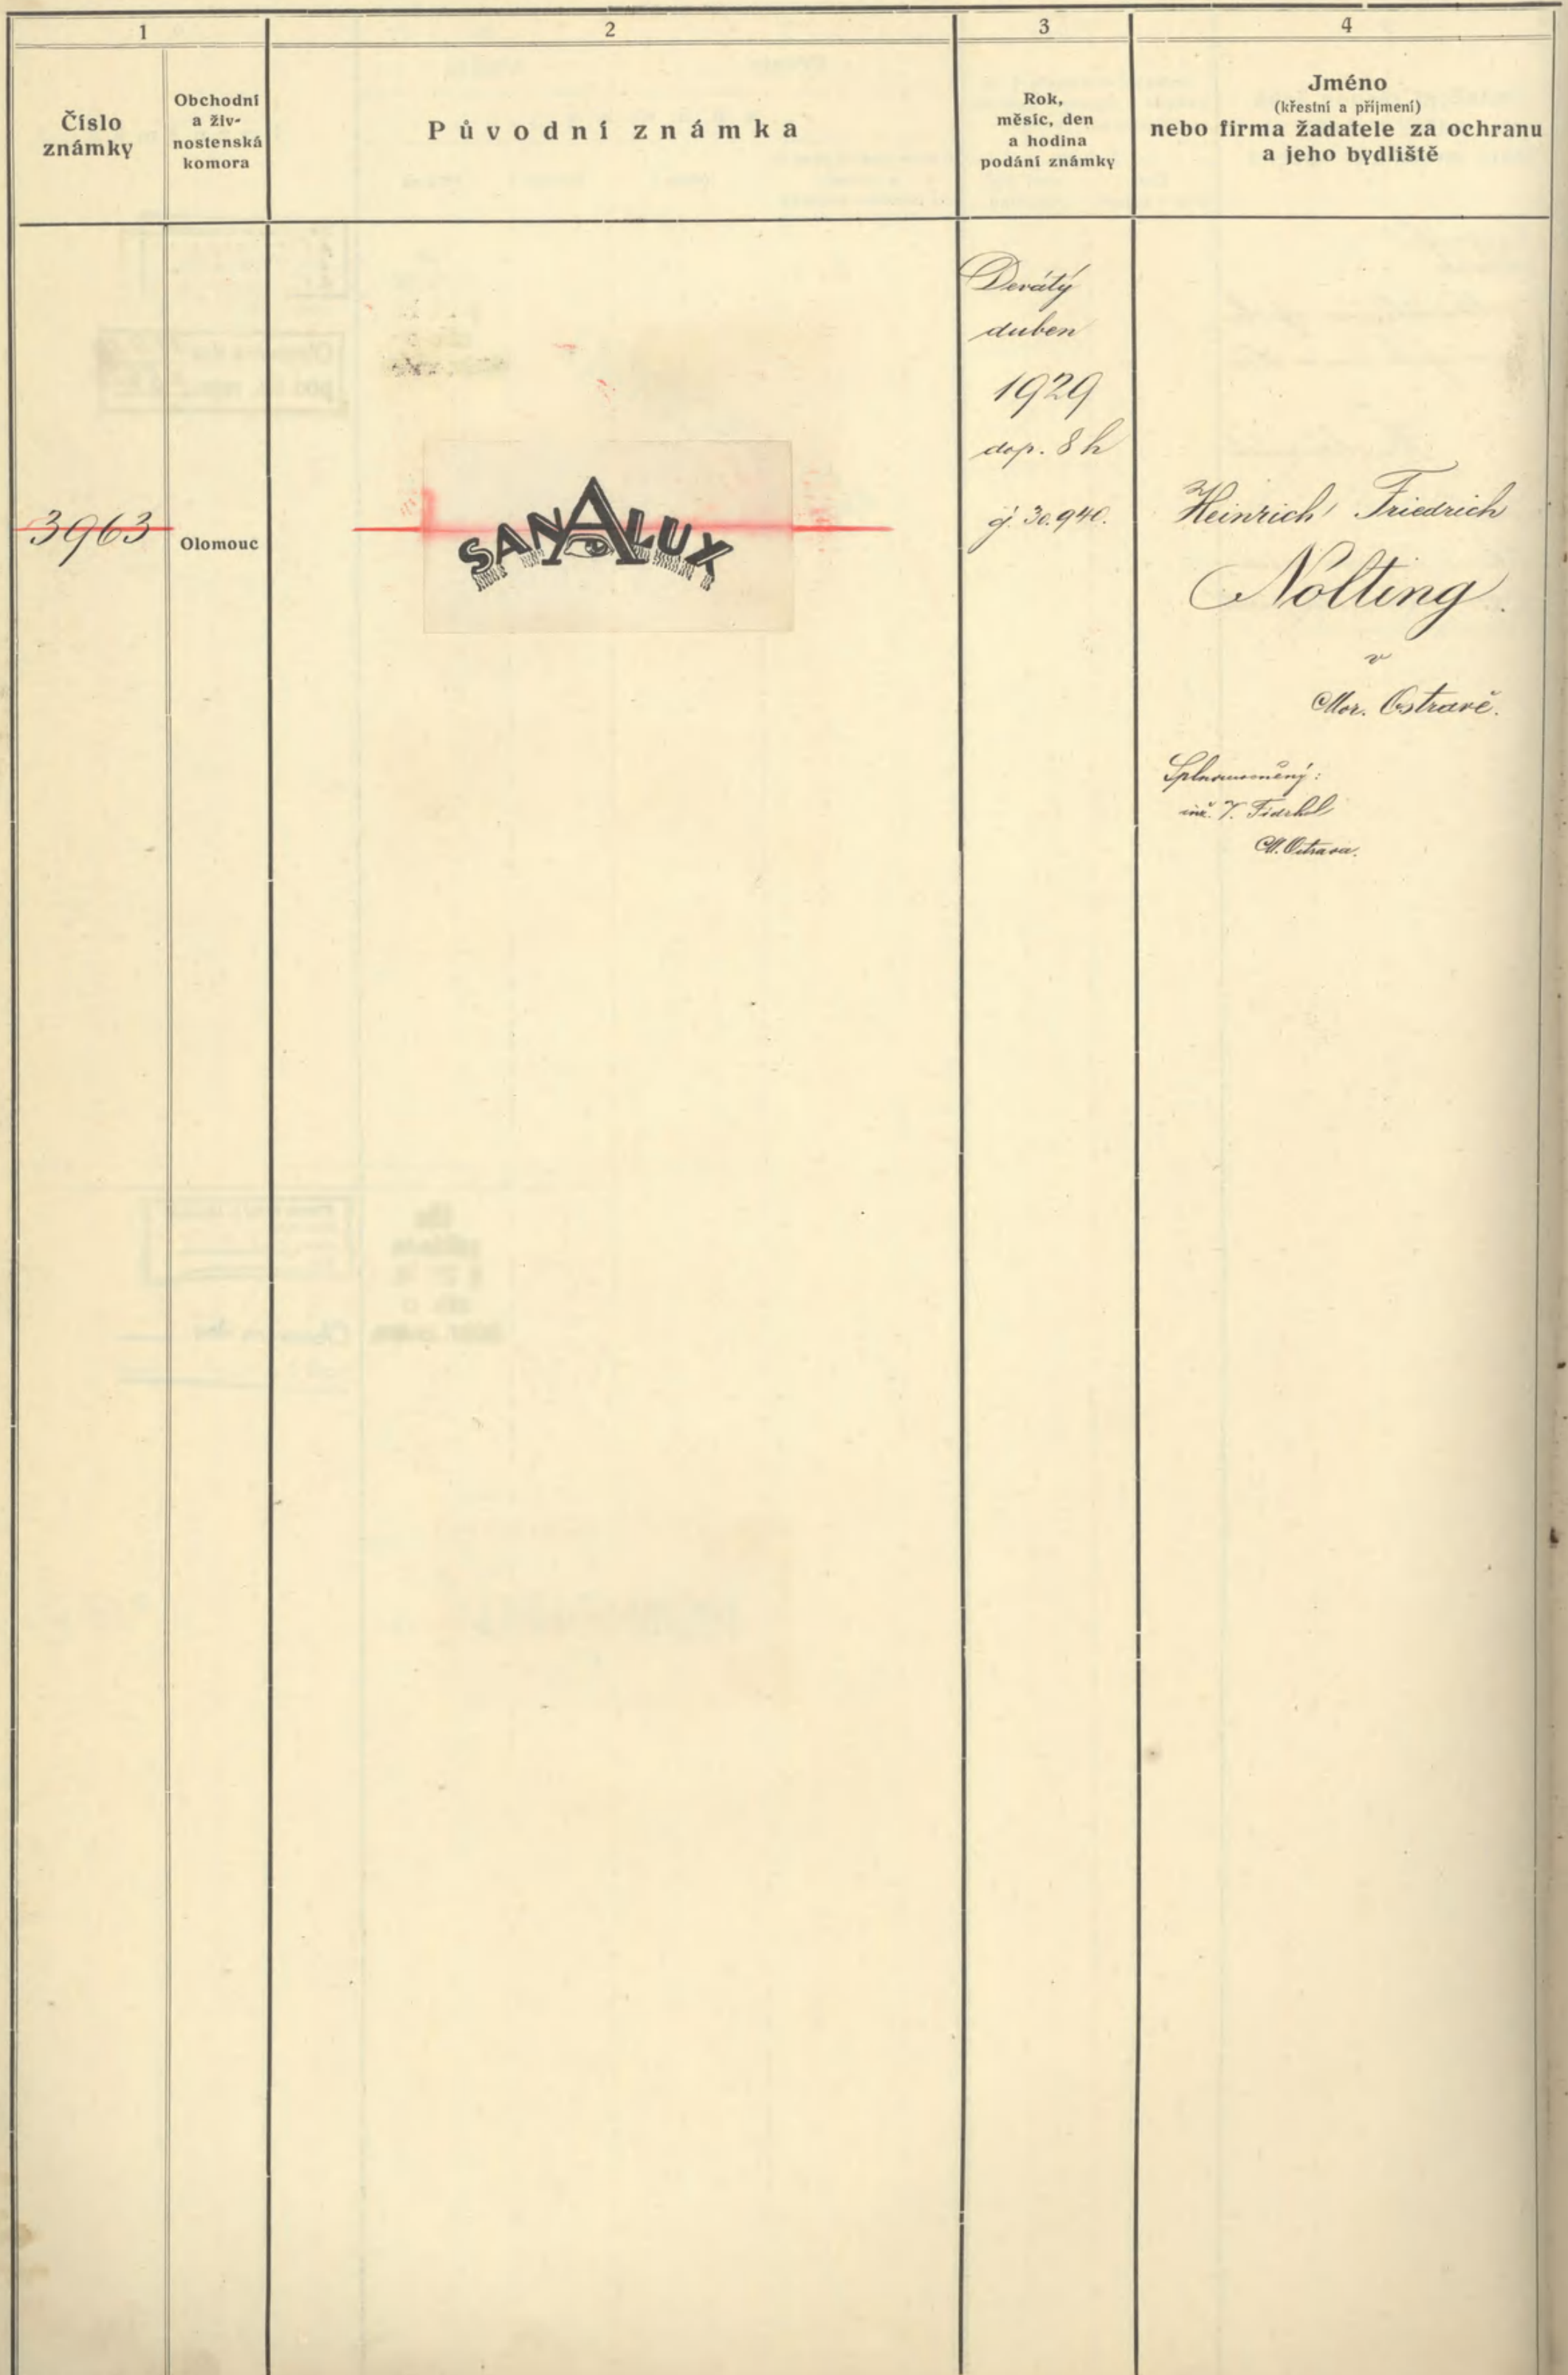 1
2
3
4
Číslo
známky
Obchodní
a živ-
nostenská
komora
Původní známka
Rok,
měsíc, den
a hodina
podání známky
Jméno
(křestní a příjmení)
nebo firma žadatele za ochranu
a jeho bydliště
3963
Olomouc
SANALUX
Devátý
duben
1929
dop. 8 h
č. 30.940.
Heinrich Friedrich
Nolting.
v
Mor. Ostravě.
Splnomocněný:
inž.
M. Ostrava.